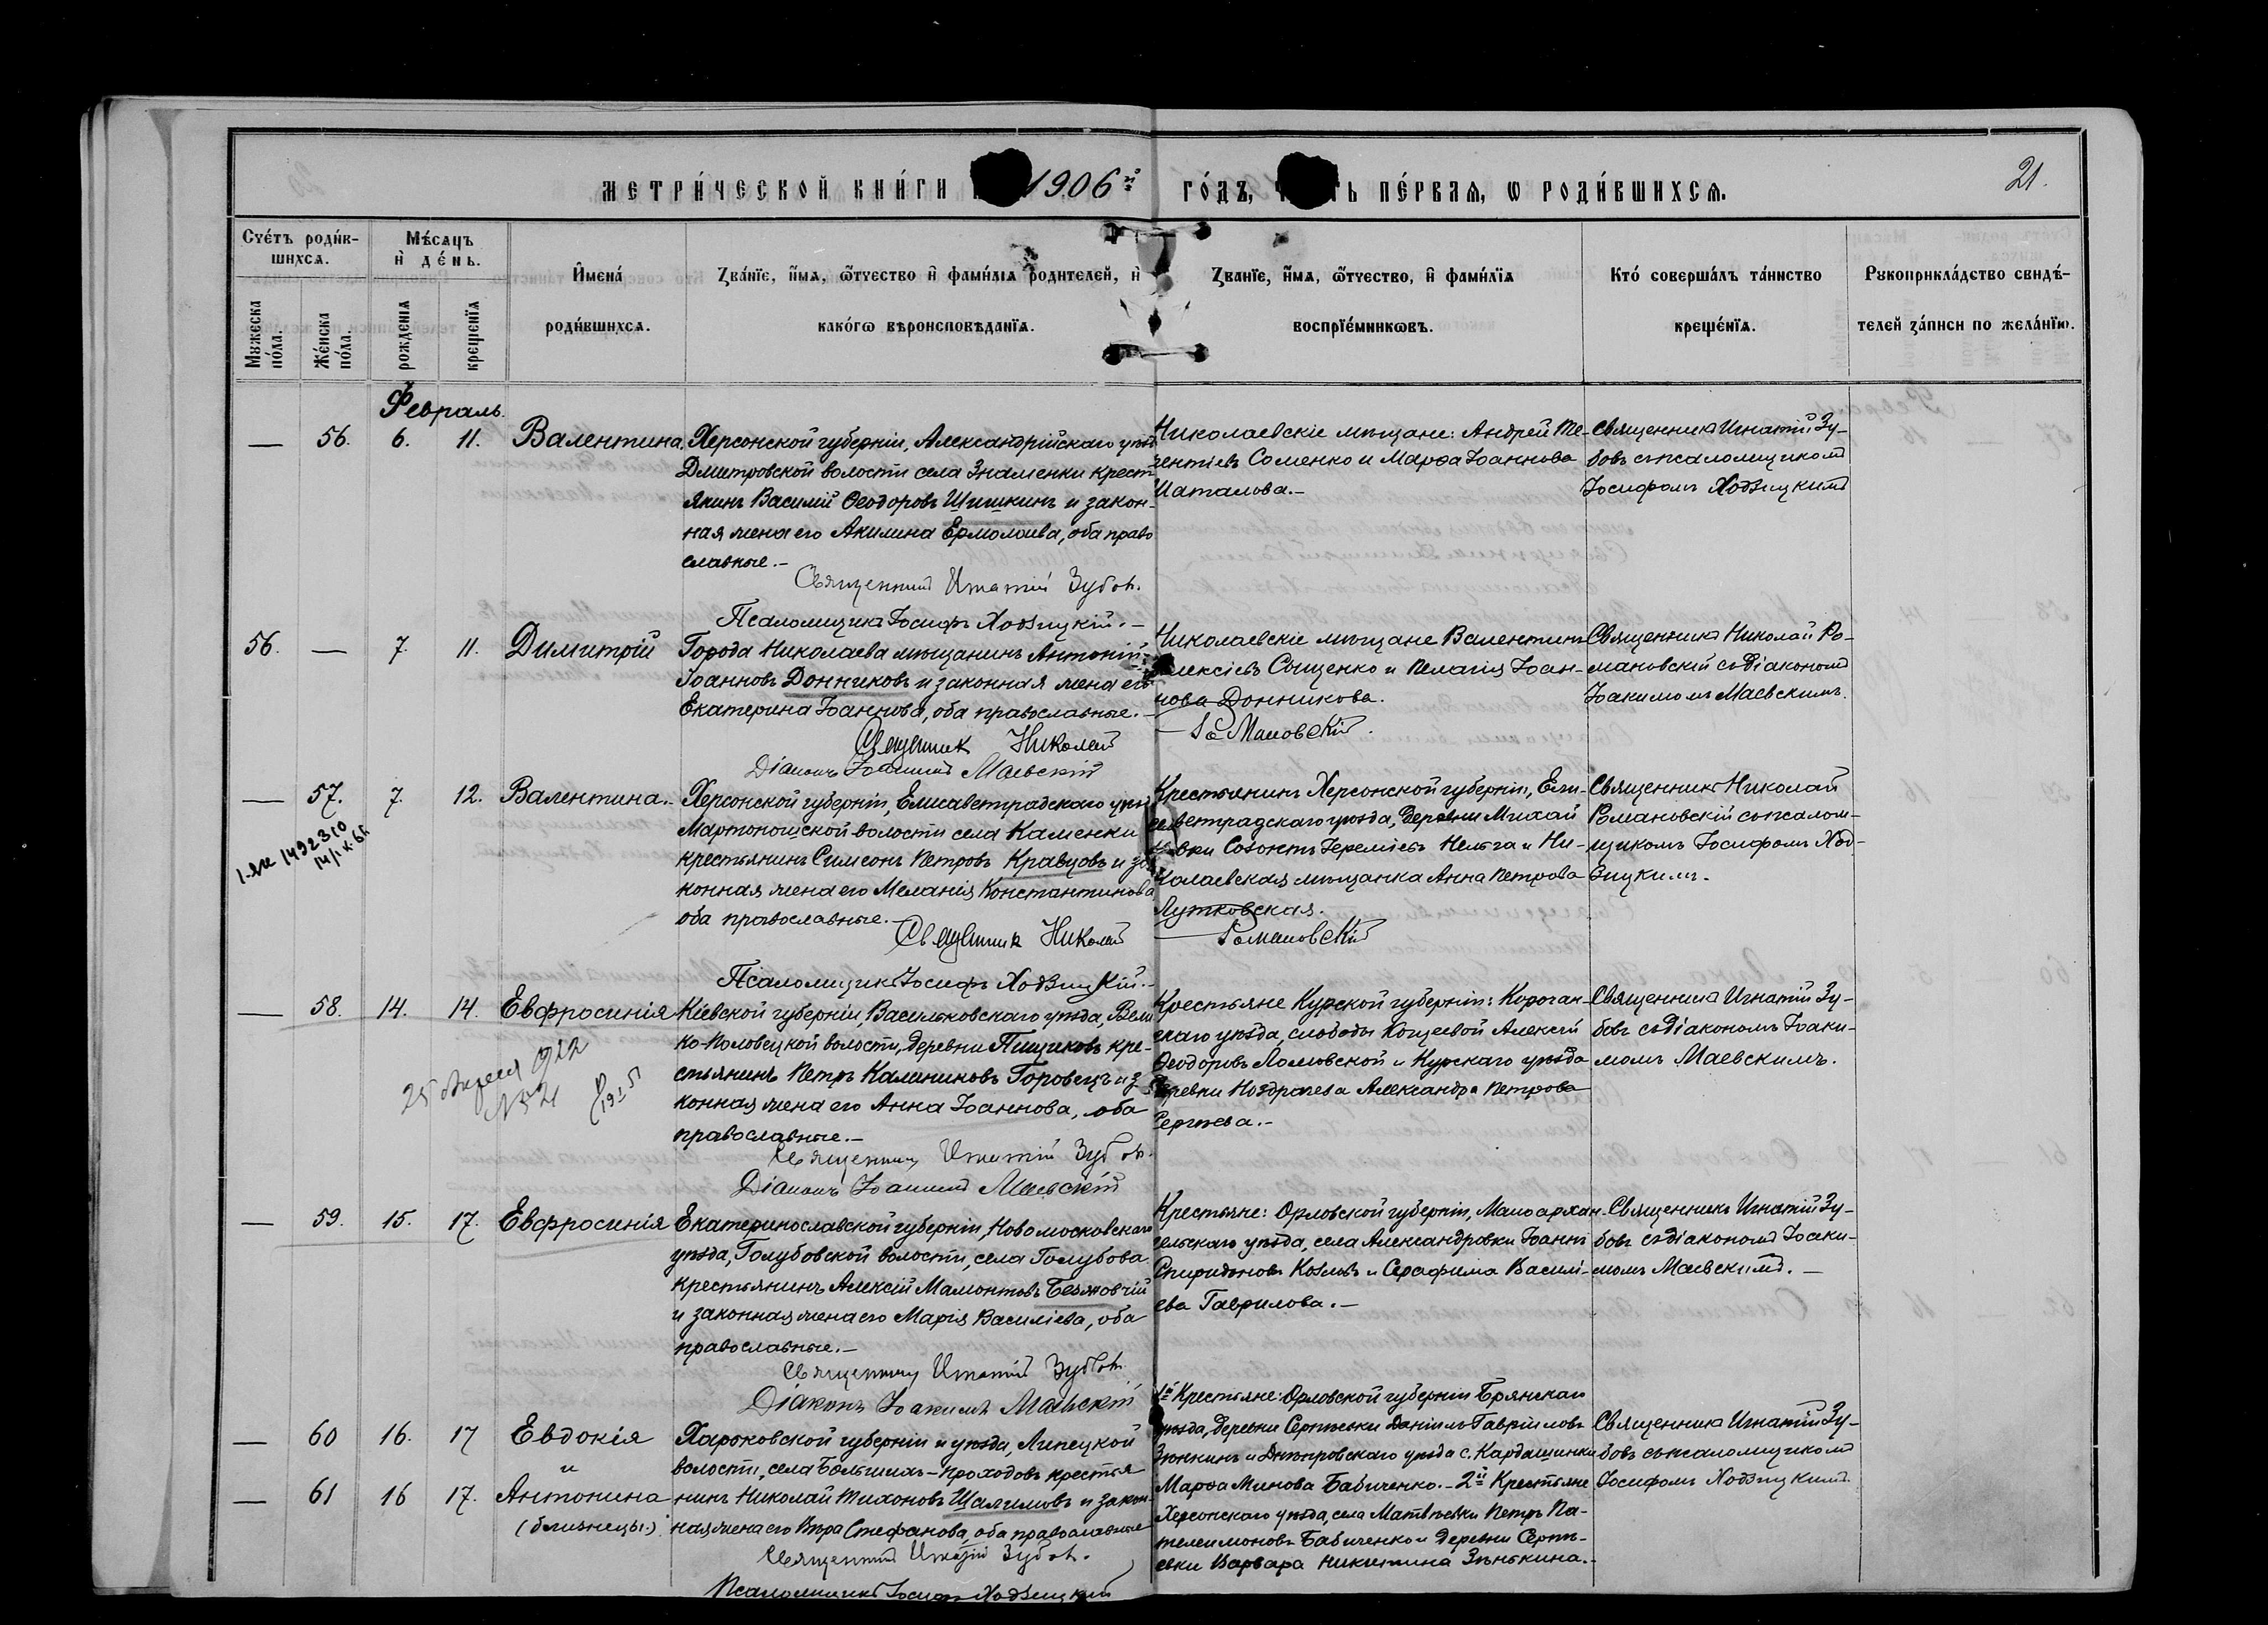 МЕТРИ́ЧЕСКОЙ КНИ́ГИ 1906й ГО́ДЪ, ПЕ́РВАѦ, Ѡ РОДИ́ВШИХСѦ.
21.
Счетъ роди́в-
шихсѧ.
Мꙋжеска по́ла.
Же́нска по́ла.
Мѣ́сѧцъ
и҆ де́нь.
рожденїѧ
крещенїѧ
И҆мена́
роди́вшихсѧ.
Зва́нїе, и҆́мѧ, ѻ҆́тчество и҆ фами́лїѧ родителей, и҆
како́гѡ вѣроисповѣданїѧ.
Зва́нїе, и҆́мѧ, ѻ҆́тчество, и҆ фами́лїѧ
воспрїе́мникѡвъ.
Кто́ соверша́лъ та́инство
креще́нїѧ.
Рꙋкоприкла́дство свидѣ́-
телей за́писи по жела́нїю.
Февраль.
— 56. 6. 11. Валентина.
Херсонской губерніи, Александрійскаго уѣзд.
Дмитровской волости села Знаменки крест-
янинъ Василій Ѳеодоровъ Шишкинъ и закон-
ная жена его Акилина Ермолаева, оба право
славные.—
Священникъ Игнатій Зубовъ.
Псаломщикъ Іосифъ Ходзицкій.—
Николаевскіе мѣщане: Андрей Те-
рентіевъ Соменко и Марѳа Іоаннова
Шаталова.—
Священникъ Игнатій Зу-
бовъ съ псаломщикомъ
Іосифомъ Ходзицкимъ
56. — 7. 11. Димитрій
Города Николаева мѣщанинъ Антоній
Іоанновъ Донниковъ и законная жена его
Екатерина Іоаннова, оба православные.—
Священник Николай Романовскій.
Діаконъ Іоакимъ Маевскій
Николаевскіе мѣщане Валентинъ
Алексіевъ Сыщенко и Пелагія Іоан-
нова Донникова.
Священникъ Николай Ро-
мановскій съ діакономъ
Іоакимомъ Маевскимъ.
— 57. 7. 12. Валентина.—
Херсонской губерніи, Елисаветградскаго уѣзд
Мартоношской волости села Каменки
крестьянинъ Симеонъ Петровъ Кравцовъ и за
конная жена его Меланія Константинова
оба православные.—
Священник Николай Романовскій
Псаломщикъ Іосифъ Ходзицкій.—
Крестьянинъ Херсонской губерніи, Ели-
саветградскаго уѣзда, деревни Михай
ловки Созонтъ Іереміевъ Нельга и Ни-
колаевская мѣщанка Анна Петрова
Лутковская.
Священникъ Николай
Романовскій съ псалом-
щикомъ Іосифомъ Ход-
зицкимъ.
1492310
— 58. 14. 14. Евфросинія
Кіевской губерніи, Васильковскаго уѣзда, Вели
ко-Половецкой волости, деревни Пищиковъ кре-
стьянинъ Петръ Калиниковъ Горовецъ и за
конная жена его Анна Іоаннова, оба
православные.—
Священникъ Игнатій Зубовъ.
Діаконъ Іоакимъ Маевскій
Крестьяне Курской губерніи: Корочан-
скаго уѣзда, слободы Кощеевой Алексій
Ѳеодоровъ Ломовской и Курскаго уѣзда
деревни Ноздрачева Александра Петрова
Сергѣева.—
Священникъ Игнатій Зу-
бовъ съ діакономъ Іоаки-
момъ Маевскимъ.
— 59. 15. 17. Евфросинія
Екатеринославской губерніи, Новомосковскаго
уѣзда, Голубовской волости, села Голубова
крестьянинъ Алексій Мамонтовъ Безжовчій
и законная жена его Марія Василіева, оба
православные.—
Священникъ Игнатій Зубовъ.
Діаконъ Іоакимъ Маевскій
Крестьяне: Орловской губерніи, Малоархан-
гельскаго уѣзда, села Александровки Іоаннъ
Спиридоновъ Козловъ и Серафима Василі-
ева Гаврилова.—
Священникъ Игнатій Зу-
бовъ съ діакономъ Іоаки-
момъ Маевскимъ.—
— 60 16. 17 Евдокія
и
— 61 16 17. Антонина
(близнецы.)
Харьковской губерніи и уѣзда, Липецкой
волости, села Большихъ-Проходовъ крестья
нинъ Николай Тихоновъ Шалимовъ и закон-
ная жена его Вѣра Стефанова, оба православные
Священникъ Игнатій Зубовъ.
Псаломщикъ Іосифъ Ходзицкій
1й Крестьяне: Орловской губерніи Брянскаго
уѣзда, деревни Сергѣевки Даніилъ Гавріиловъ
Зюнкинъ и Днѣпровскаго уѣзда с. Кардашинки
Марѳа Минова Бабиченко.— 2й Крестьяне
Херсонскаго уѣзда, села Матвѣевки Петръ Па-
телеимоновъ Бабиченко и деревни Сергѣ-
евки Варвара Никитина Зѣнькина.—
Священникъ Игнатій Зу-
бовъ съ псаломщикомъ
Іосифомъ Ходзицкимъ.